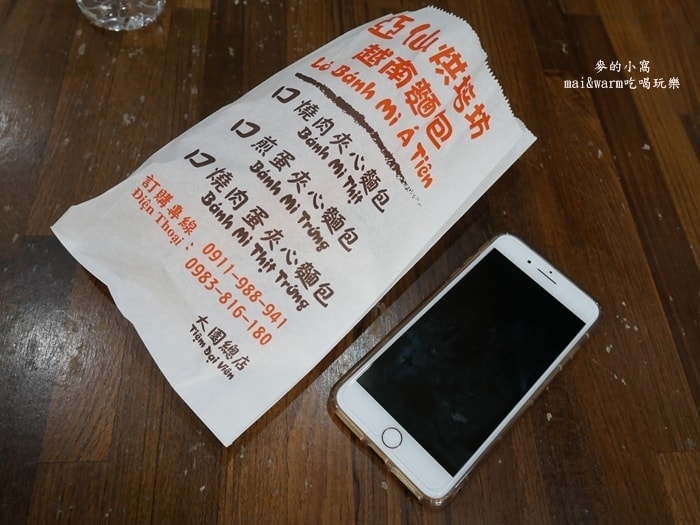 亞仙烘焙坊
越南麵包
Lò Bánh Mì Á Tiên
燒肉夾心麵包
Bánh Mì Thịt
煎蛋夾心麵包
Bánh Mì Trứng
燒肉蛋夾心麵包
Bánh Mì Thịt Trứng
訂購專線：0911-988-941
Điện Thoại 0983-816-180
大園總店
Tiệm Đại Viên
麥的小窩
mai&warm吃喝玩樂